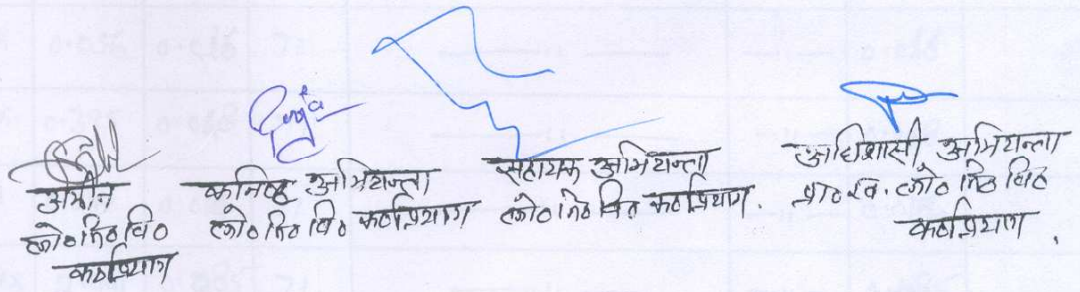 अमीन
लो०नि०वि०
कर्णप्रयाग
कनिष्ठ अभियन्ता
लो०नि०वि० कर्णप्रयाग
सहायक अभियन्ता
लो०नि०वि० कर्णप्रयाग.
अधिशासी अभियन्ता
प्रा०ख. लो०नि०वि०
कर्णप्रयाग.